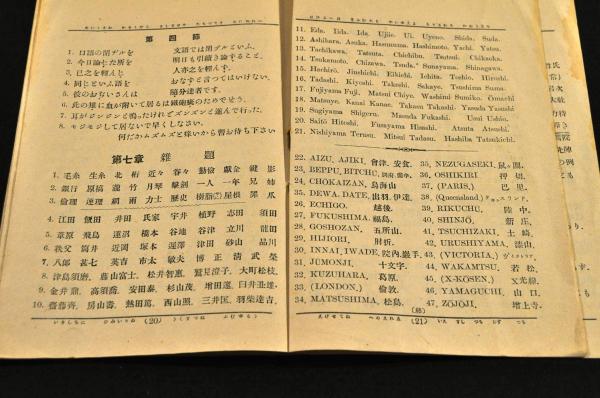 第四節
1. 口語の閉ヂルを 文語では閉ヅルといふ。
2. 今日論じた所を 明日も引續き論ずること。
3. 己之を輕んじ 人亦之を輕んず。
4. 同じといふ語を おなずと言つてはいけない。
5. 彼のおぢいさんは 隨分達者です。
7. 耳がジンジンと鳴つたけれどズンズンと進んで行つた。
8. モジモジして居ないで早くしなさい。
何だかムズムズと痒いから暫お待ち下さい
第七章 雜題
1. 毛糸 生糸 北 桁 近々 谷々 動悸 獻金 鍵 影
2. 銀行 原稿 瀧 竹 月琴 擊劍 一人 一年 兄 姉
3. 倫理 連理 絹 雨 力士 歷史 樹脂 屋根 澤 爪
4. 江田 飯田 井田 氏家 宇井 植野 志田 須田
5. 葦原 飛鳥 蓮沼 橋本 谷地 谷津 立川 龍田
6. 秩父 筒井 近岡 塚本 遲澤 津田 砂山 品川
7. 八郎 甚七 英吉 市太 敏夫 博 正 淸 武 榮
8. 津島須磨、藤山富士、松井智惠、鷲見澄子、大町松枝、
9. 金井鼎、高須喬、安田泰、杉山茂、增田進、臼井亜雄、
10. 齋藤齊、房山壽、熱田篤、西山照、三井匡、羽柴達吉、
(20)
11. Eda. Iida. Ida. Ujiie. Ui. Uyeno. Shida. Suda.
12. Ashihara. Asuka. Hasunuma. Hashimoto. Yachi. Yatsu.
13. Tachikawa. Tatsuta. Chichibu. Tsutsui. Chikaoka.
14. Tsukamoto. Chizawa. Tsuda. Sunayama. Shinagawa.
15. Hachirō. Jinshichi. Eikichi. Ichita. Toshio. Hiroshi.
16. Tadashi. Kiyoshi. Takeshi. Sakaye. Tsushima Suma.
17. Fujiyama Fuji. Matsui Chiye. Washimi Sumiko. Ōmachi
18. Matsuye. Kanai Kanae. Takasu Takashi. Yasuda Yasushi
19. Sugiyama Shigeru. Masuda Fukashi. Usui Ushio.
20. Saitō Hitoshi. Fusayama Hisashi. Atsuta Atsushi.
21. Nishiyama Terasu. Mitsui Tadasu. Hashiba Tatsukichi.
22. AIZU, AJIKI, 會津、安食、
23. BEPPU, BITCHU,
24. CHOKAIZAN, 鳥海山
25. DEWA, IZU, DATE, 出羽、伊達、
26. ECHIGO, 越後、
27. FUKUSHIMA, 福島、
28. GOSHOZAN, 五所山、
29. HIJIORI, 肘折、
30. INNAI, IWADE, 院內、巖手、
31. JŪMONJI, 十文字、
32. KUZUHARA, 葛原、
33. (LONDON,) 倫敦、
34. MATSUSHIMA, 松島、
35. NEZUGASEKI, 鼠ヶ關、
36. OSHIKIRI 押切、
37. (PARIS,) 巴里、
38. (Queensland,) クヰンスランド、
39. RIKUCHU, 陸中、
40. SHINJŌ, 新庄、
41. TSUCHIZAKI, 土崎、
42. URUSHIYAMA, 漆山、
43. (VICTORIA,) ヴィクトリア、
44. WAKAMTSU, 若松、
45. (X-KŌSEN,) X光線、
46. YAMAGUCHI, 山口、
47. ZŌJŌJI, 增上寺、
(21)